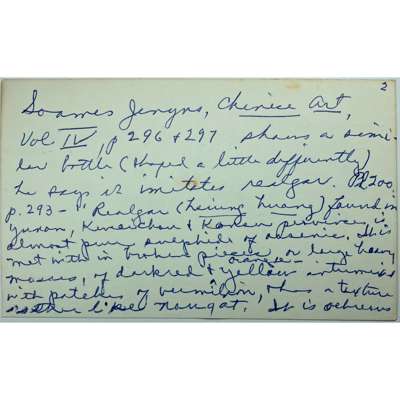 2
Soames Jenyns, Chinese Art,
Vol IV, p 296 & 297 shows a simi-
lar bottle (shaped a little differently)
he says it imitates realgar. Pl 200.
p. 293 - "Realgar (hsiung huang) found in
Yunan, Kweichou & Kansu provinces, is
almost pure sulphide of arsenic. It is
met with in broken pieces, or large heavy
masses, of dark red & orange yellow intermixed
with patches of vermilion, & has a texture
rather like nougat. It is ochreous